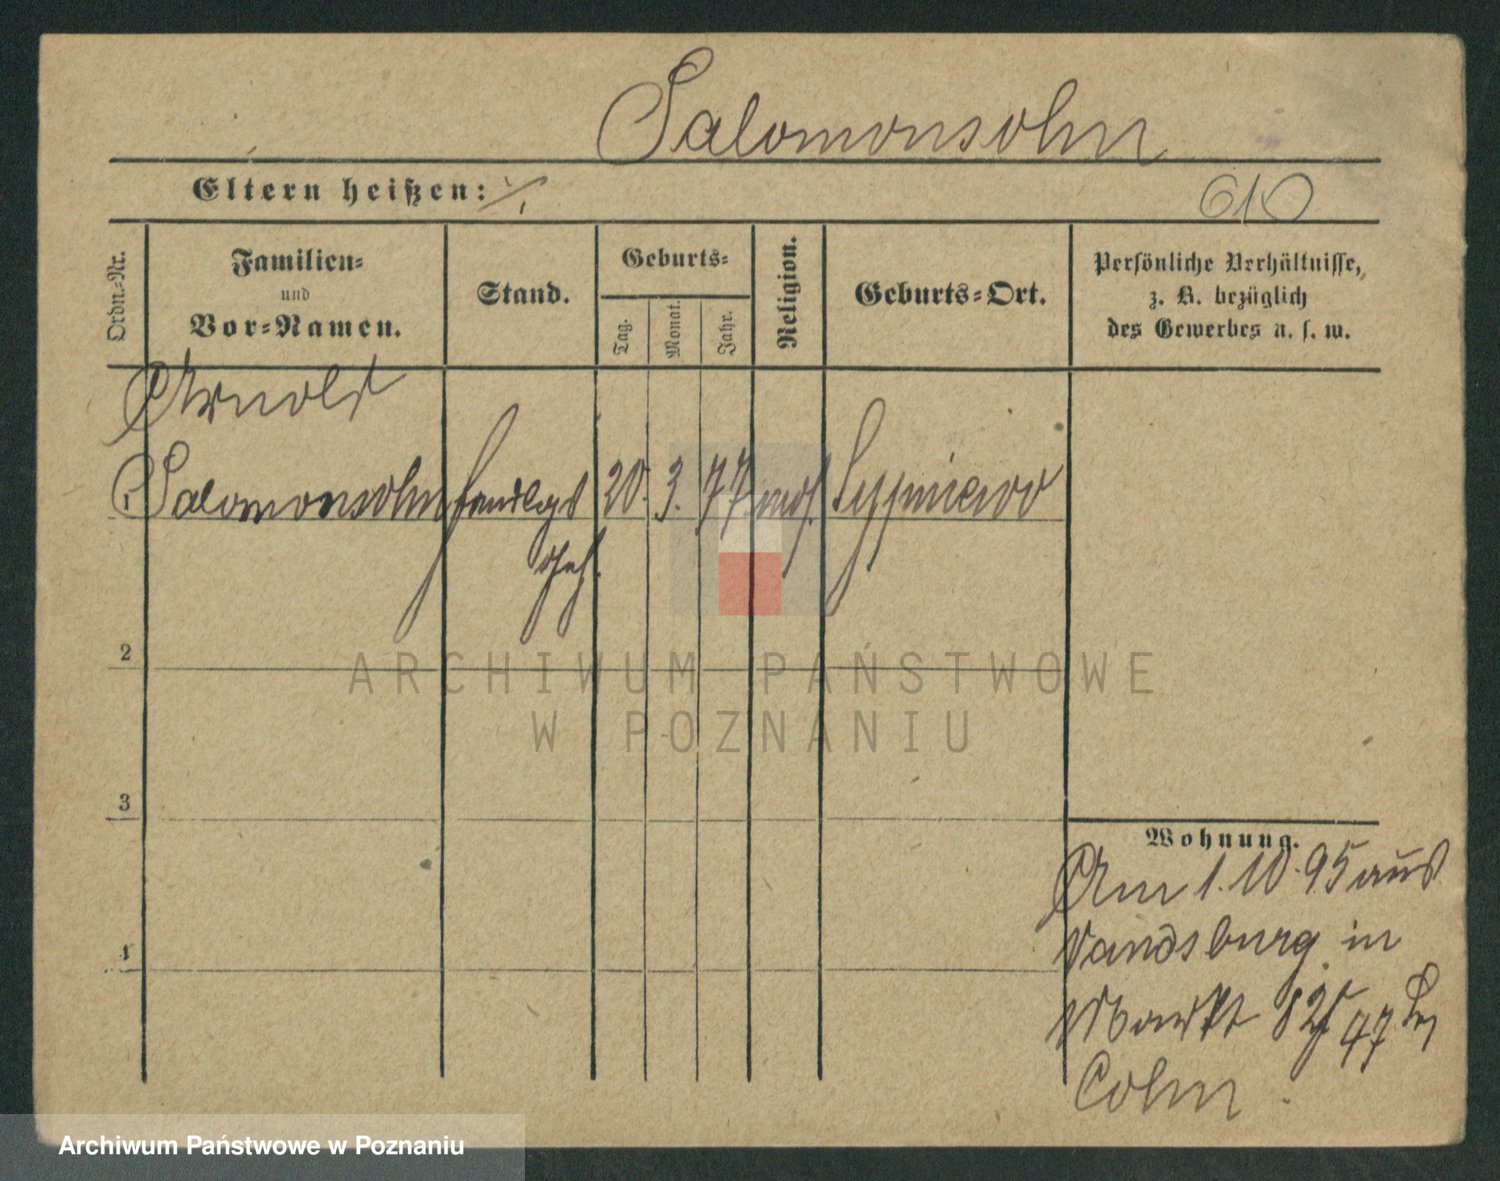 Salomonsohn
Eltern heißen: ./.
610
Ordn.-Nr.
Familien-
und
Vor-Namen.
Stand.
Geburts-
Tag.
Monat.
Jahr.
Religion.
Geburts-Ort.
Persönliche Verhältnisse,
z. B. bezüglich
des Gewerbes u. s. w.
Arnold
1 Salomonsohn Handlgs 20. 3. 77. mos.
Geh.
2
3
4
Wohnung.
Am 1.10.95 aus
Vandsburg in
Markt 82/47 bei
Cohn.
ARCHIWUM PAŃSTWOWE
W POZNANIU
Archiwum Państwowe w Poznaniu